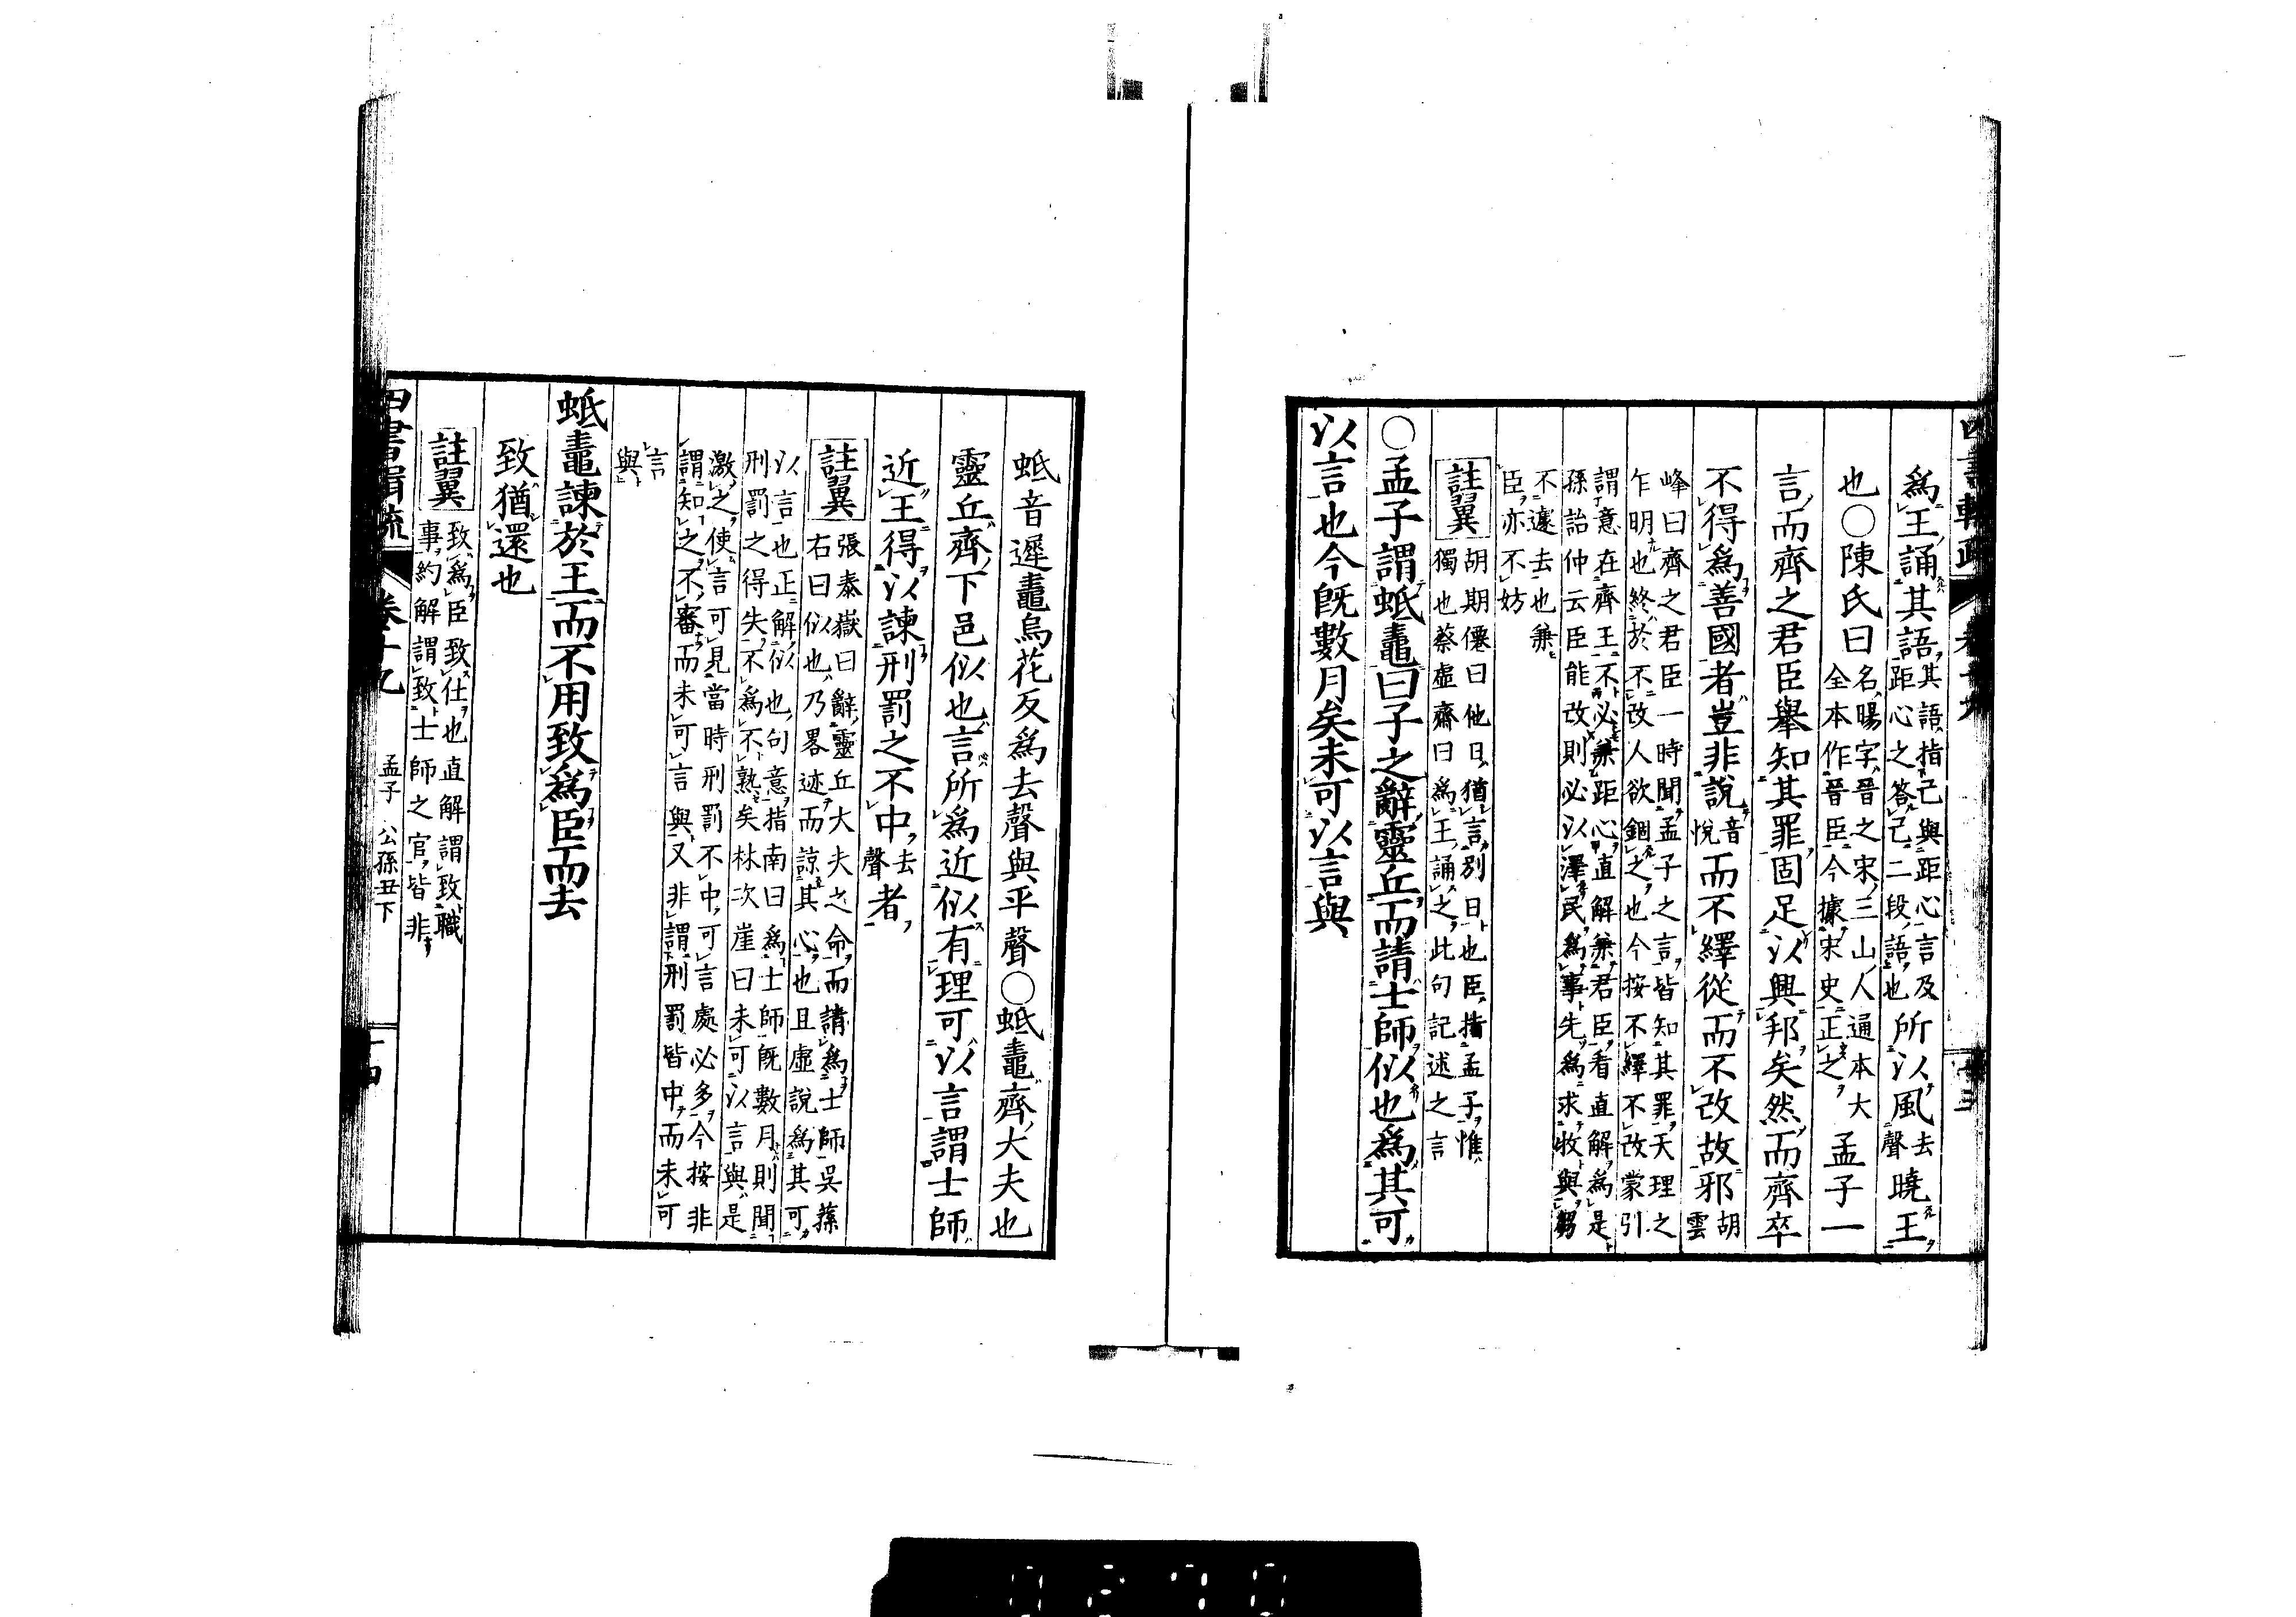 爲王誦其語其語指己與距心言及
距心之答己二段語也所以風去聲曉王
也○陳氏曰名暘字晉之宋三山人通本大
全本作晉臣今據宋史正之孟子一
言而齊之君臣舉知其罪固足以興邦矣然而齊卒
不得爲善國者豈非說音悅而不繹從而不改故邪胡雲
峰曰齊之君臣一時聞孟子之言皆知其罪天理之
乍明也終於不改人欲錮之也今按不繹不改蒙引
謂意在齊王不必兼距心直解兼君臣看直解爲是
孫詒仲云臣能改則必以澤民爲事先爲求牧與芻
不遽去也兼
臣亦不妨
註翼
胡期僊曰他日猶言別日也臣指孟子惟
獨也蔡虛齋曰爲王誦之此句記述之言
○孟子謂蚳鼃曰子之辭靈丘而請士師似也爲其可
以言也今旣數月矣未可以言與
蚳音遲鼃烏花反爲去聲與平聲○蚳鼃齊大夫也
靈丘齊下邑似也言所爲近似有理可以言謂士師
近王得以諫刑罰之不中去聲者
註翼
張泰嶽曰辭靈丘大夫之命而請爲士師吳蓀
右曰似也乃畧迹而諒其心也且虛說爲其可
以言也正解似也句意指南曰爲士師旣數月則聞
刑罰之得失不爲不熟矣林次崖曰未可以言與是
激之使言可見當時刑罰不中可言處必多今按非
謂知之不審而未可言與又非謂刑罰皆中而未可
言
與
蚳鼃諫於王而不用致爲臣而去
致猶還也
註翼
致爲臣致仕也直解謂致職
事約解謂致士師之官皆非
四書輯疏
卷十九
孟子 公孫丑下
十四